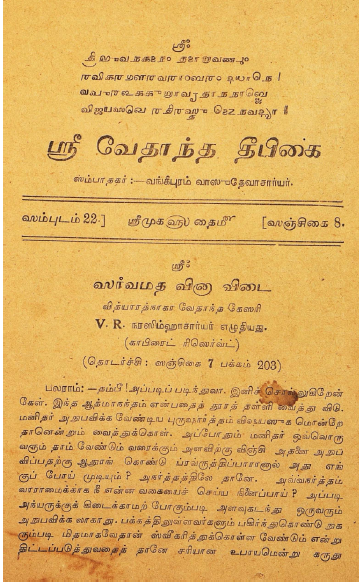 ஸ்ரீ:
ஸ்ரீ வேதாந்த தீபிகை
ஸம்பாதகர் :—வங்கீபுரம் வாஸுதேவாசார்யர்.
ஸம்புடம் 22.] ஸ்ரீமுக தைமீ [ஸஞ்சிகை 8.
ஸ்ரீ:
ஸர்வமத வினா விடை
வேதாந்த கேஸரி
V. R. நரஸிம்ஹாசார்யர் எழுதியது.
(காபிரைட் ரிஸெர்வ்ட்)
(தொடர்ச்சி : ஸஞ்சிகை 7 பக்கம் 203)
பலராம் :—நம்பீ! அப்படிப் படிந்துவா. இனிச்
கேள். இந்த ஆத்மாகந்தம் என்பதைத் தூரத் தள்ளி வைத்து விடு.
மனிதர் அநுபவிக்க வேண்டிய புருஷார்த்தம் மொன்றே
தானென்றும் வைத்துக்கொள். அப்போதும் மனிதர் ஒவ்வொரு
வரும் தாம் வேண்டும் வரைக்கும் அளவிற்கு விஞ்சி அதனை அநுப
விப்பதற்கு கொண்டு ப்ரவ்ருத்திப்பாரானால் அது எங்
குப் போய் முடியும்? அநர்த்தத்திலே தானே. அவ்வநர்த்தம்
வராமைக்காக நீ என்ன வகையைச் செய்ய நினைப்பாய்? அப்படி
அந்யருக்குக் கிடைக்காமற் போகும்படி அளவுகடந்து ஒருவரும்
அநுபவிக்க லாகாது. பக்கத்திலுள்ளவர்களும் பகிர்ந்துகொண்டு நுக
ரும்படி மிதமாகவேதான் ஸ்வீகரித்துக்கொள்ள வேண்டும் என்று
திட்டப்படுத்துவதைத் தானே சரியான உபாயமென்று கருது